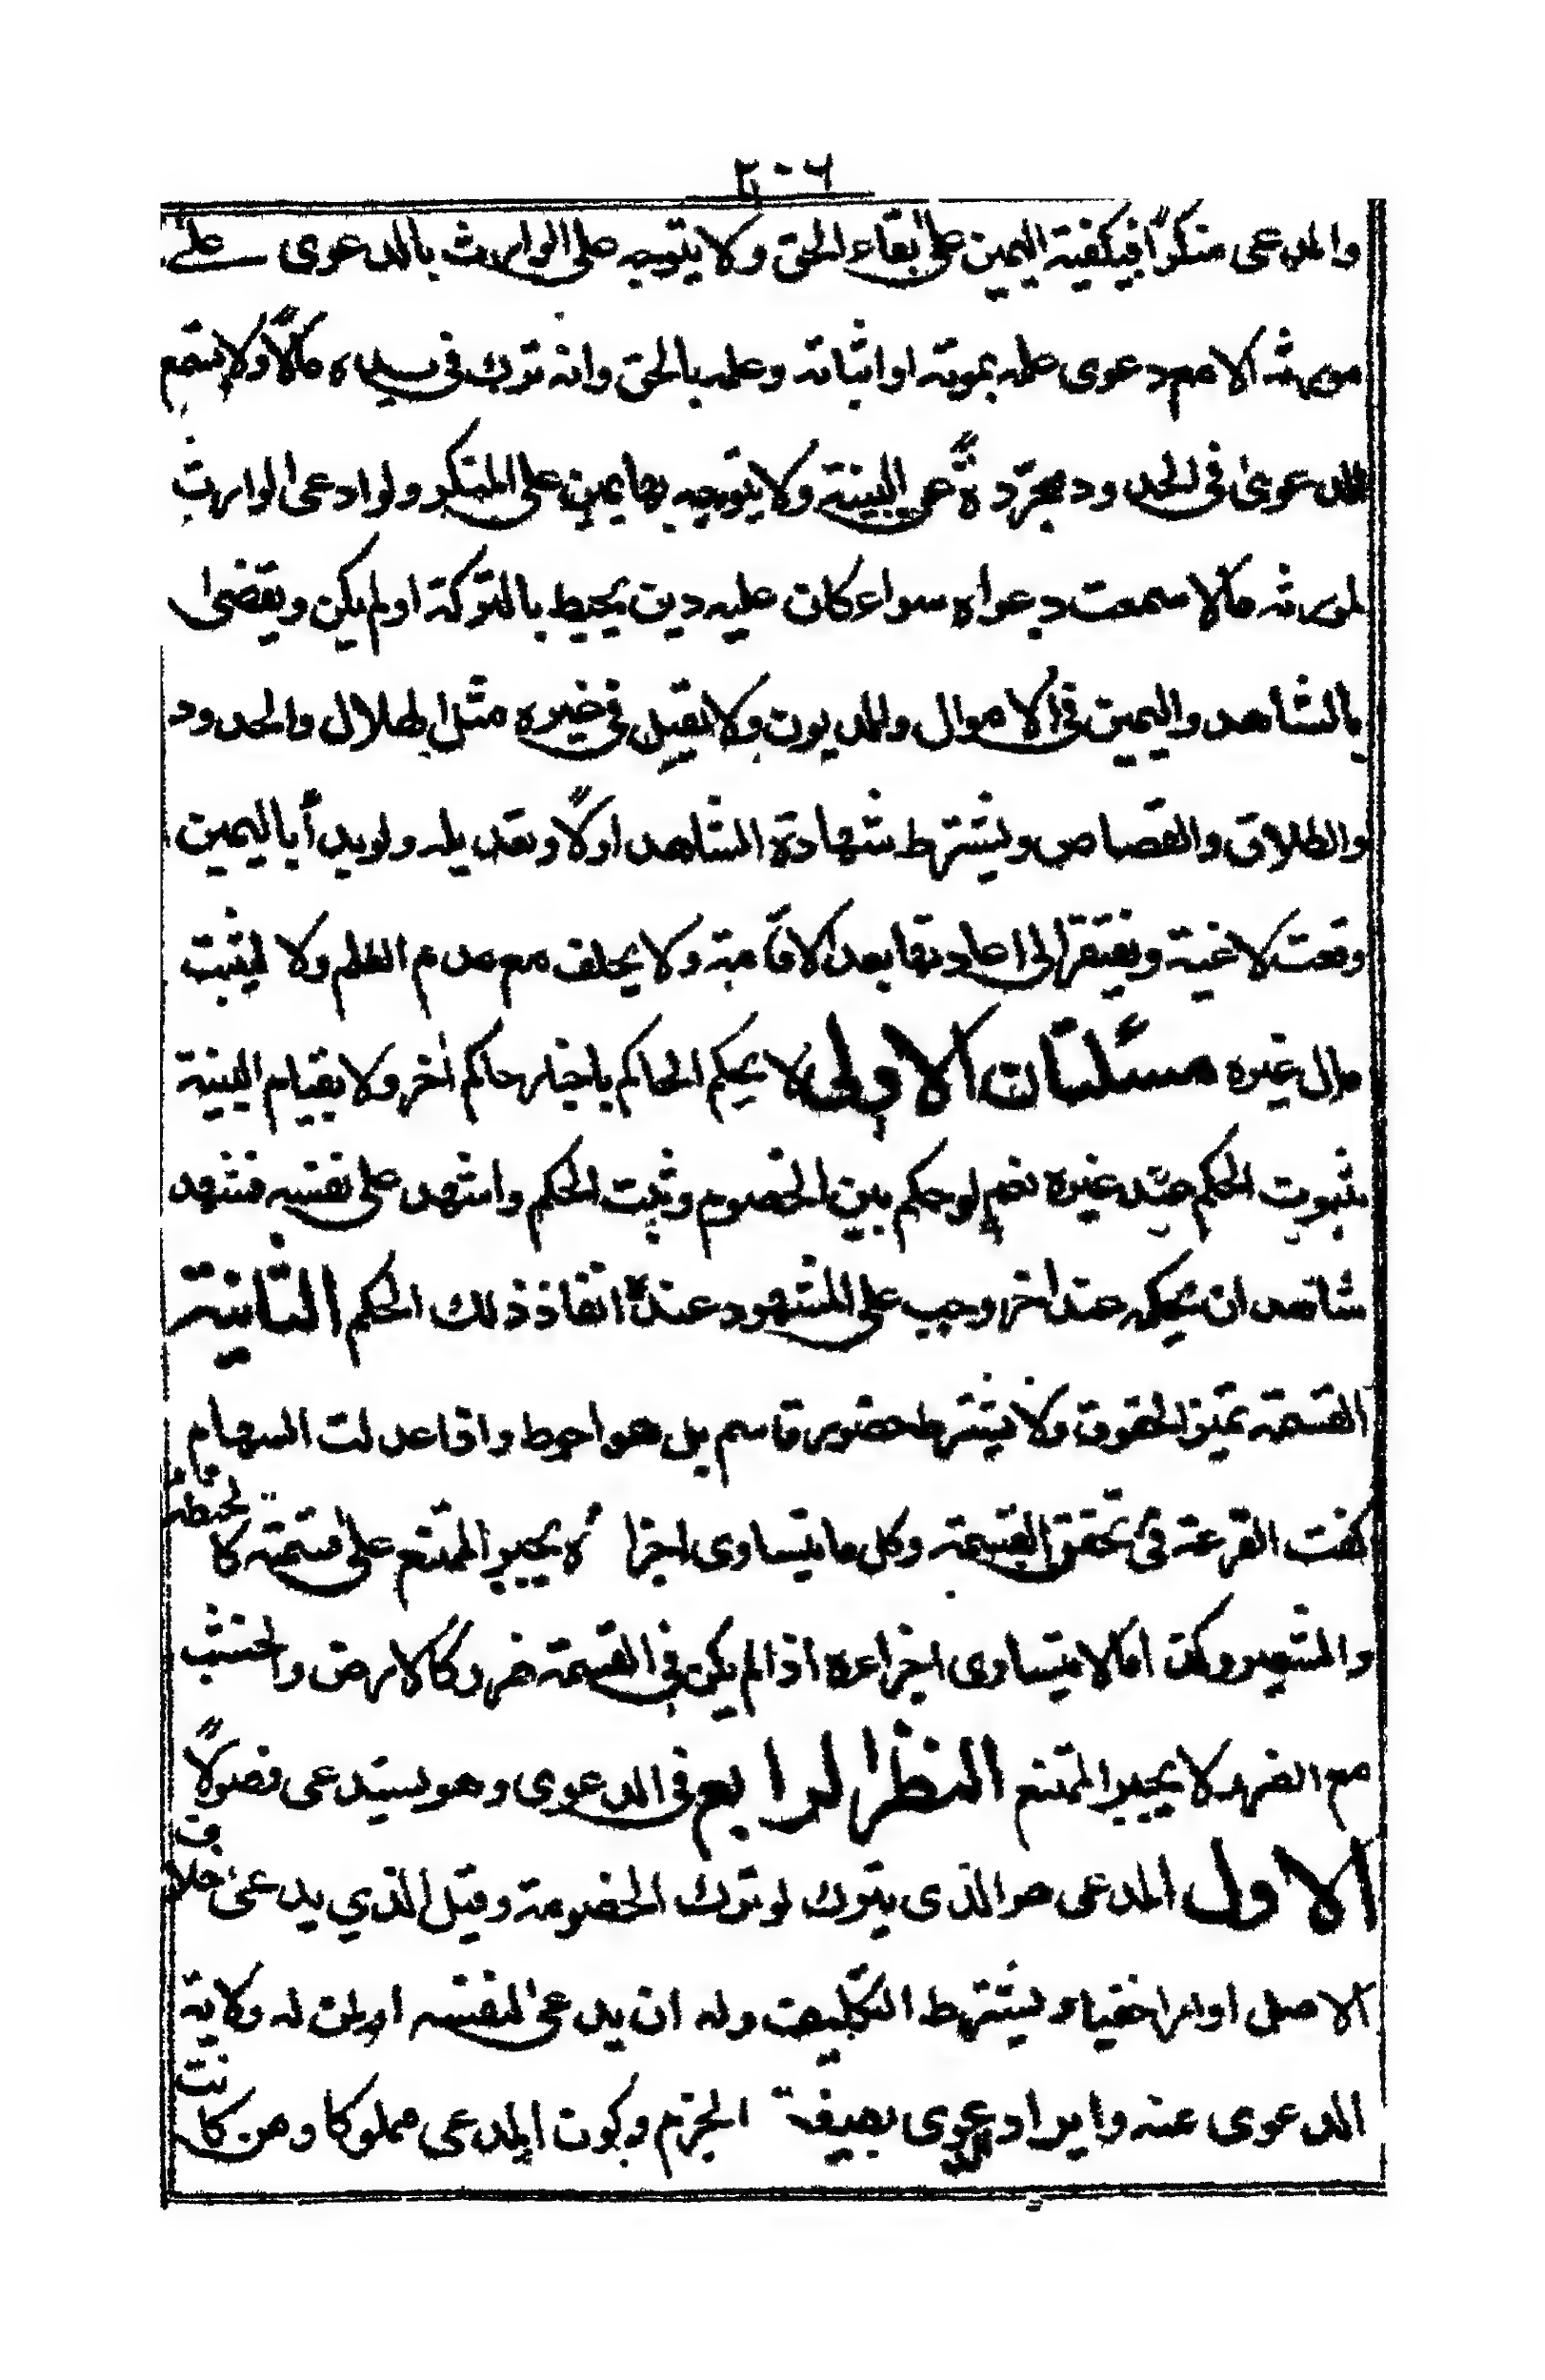 ٢٠٦
والمدعى منكرًا فيكفية اليمين على بقاء الحق ولا يتوجه على الوارث بالدعوى على
مورثه الا مع دعوى علمه بموته او اثباته وعلمه بالحق وانه ترك فى يده مالًا ولا يسمع
الدعوى فى الحدود مجردةً عن البينة ولا يتوجه بها يمين على المنكر ولو ادعى الوارث
لمورثه مالا سمعت دعواه سواء كان عليه دين يحيط بالتركة او لم يكن ويقضى
بالشاهد واليمين فى الاموال والديون ولا يقبل فى غيره مثل الهلال والحدود
والطلاق والقصاص ويشترط شهادة الشاهد اولًا وتعديله ولو بدأ باليمين
وقعت لاغية ويفتقر الى اعادتها بعد الاقامة ولا يحلف مع عدم العلم ولا ليثبت
مال غيره مسئلتان الاولى لا يحكم الحاكم باخبار حاكم اخر ولا بقيام البينة
بثبوت الحكم عند غيره نعم لو حكم بين الخصوم وثبت الحكم واشهد على نفسه فشهد
شاهدان بحكمه عند اخر وجب على المشهود عنده انفاذ ذلك الحكم الثانية
القسمة تميز الحقوق ولا يشترط حضور قاسم بل هو احوط واذا عدلت السهام
كفت القرعة فى تحقق القسمة وكل ما يتساوى اجزاءه يجبر الممتنع على قسمته كالحنطة
والشعير وكذا مالا يتساوى اجزاءه اذا لم يكن فى القسمة ضرر كالارض والخشب
مع الضرر لا يجبر الممتنع النظر الرابع فى الدعوى وهو يستدعى فصولًا
الاول المدعى هو الذى يترك لو ترك الخصومة وقيل الذي يدعى خلاف
الاصل او امرا خفيا ويشترط التكليف وله ان يدعى لنفسه او لمن له ولاية
الدعوى عنه وايراد عوى بصيغة الجزم وكون المدعى مملوكا ومن كانت